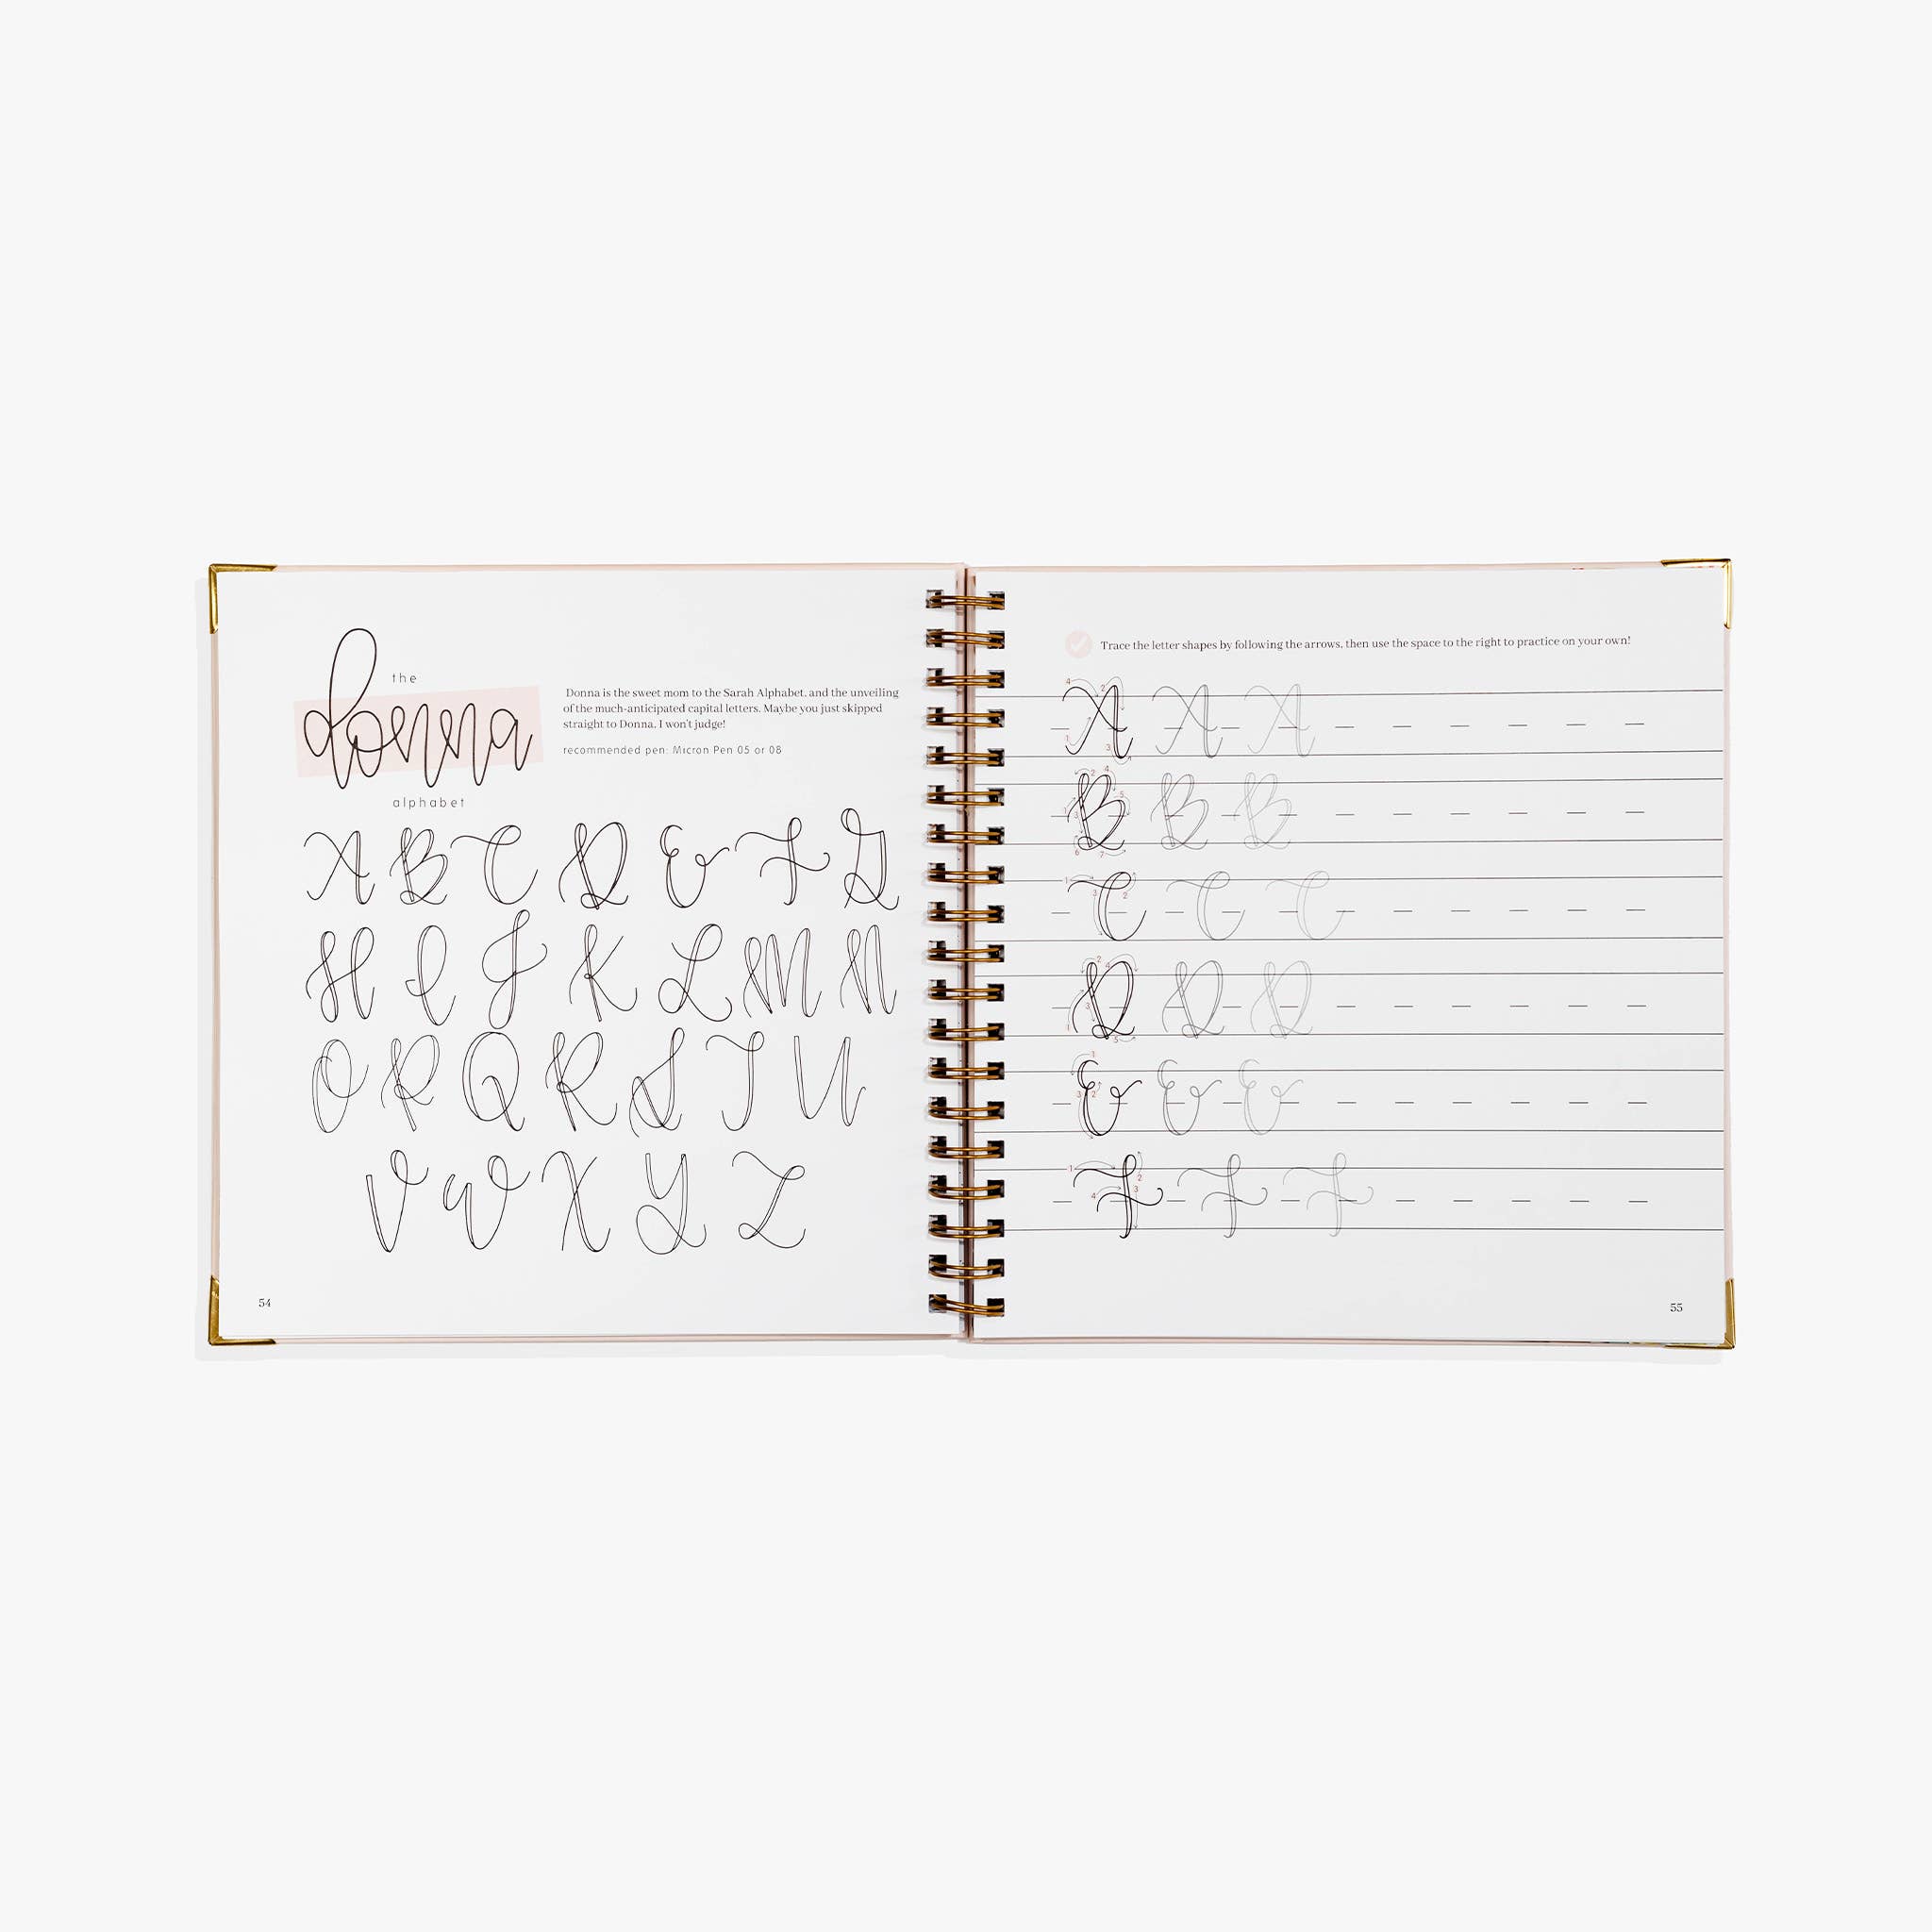 the
donna
alphabet
Donna is the sweet mom to the Sarah Alphabet, and the unveiling
of the much-anticipated capital letters. Maybe you just skipped
straight to Donna, I won't judge!
recommended pen: Micron Pen 05 or 08
A B C D E F G
H I J K L M N
O P Q R S T U
V W X Y Z
54
Trace the letter shapes by following the arrows, then use the space to the right to practice on your own!
A A A
B B B
C C C
D D D
E E E
F F F
55